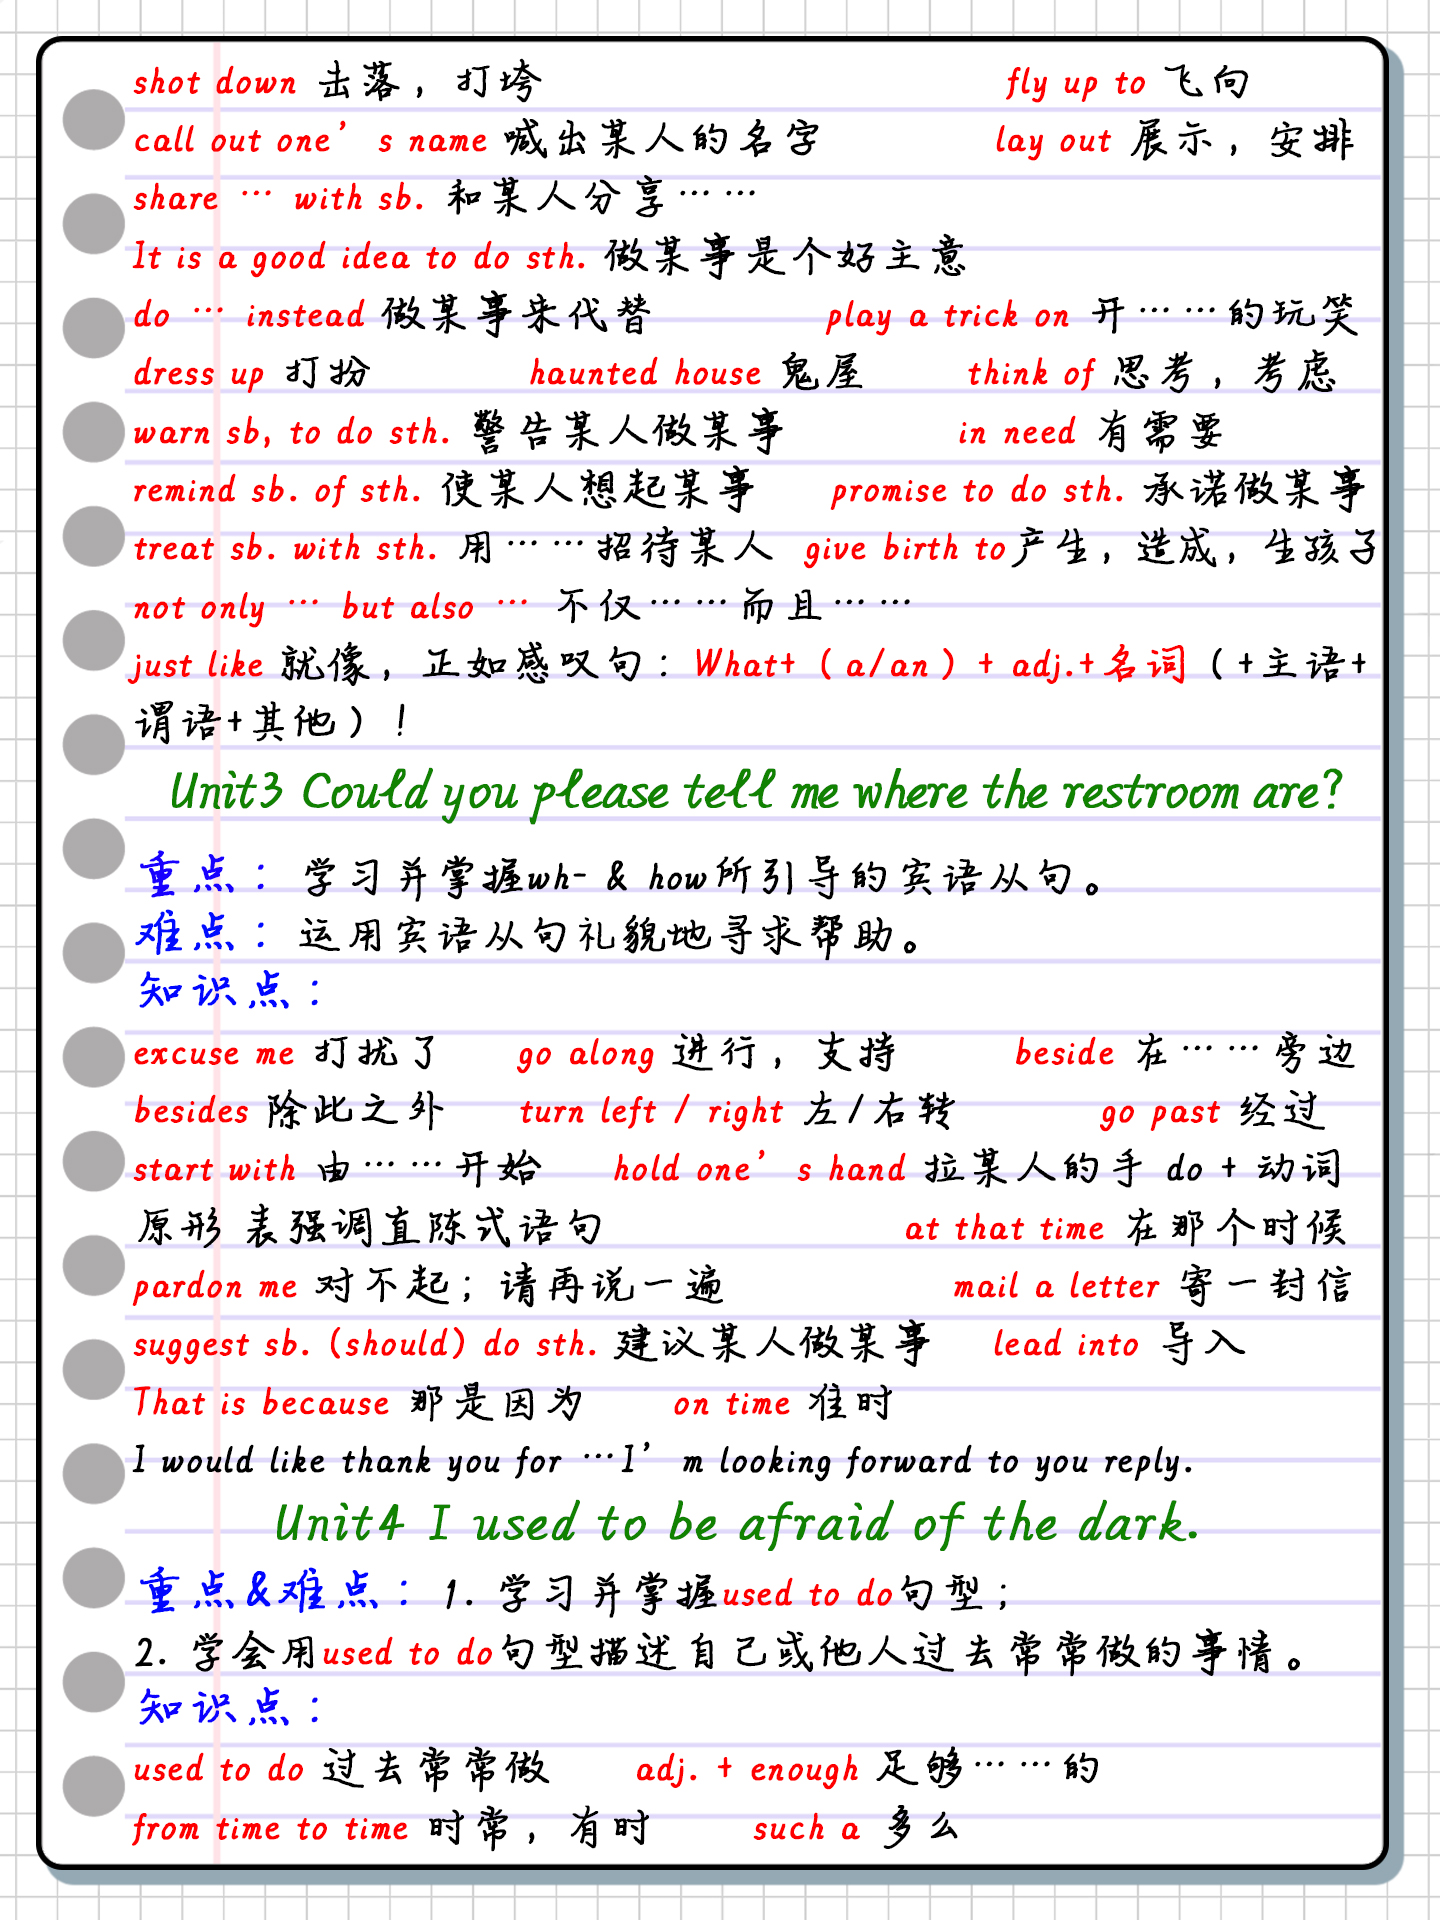 shot down 击落，打垮 fly up to 飞向
call out one’s name 喊出某人的名字 lay out 展示，安排
share … with sb. 和某人分享……
It is a good idea to do sth. 做某事是个好主意
do … instead 做某事来代替 play a trick on 开……的玩笑
dress up 打扮 haunted house 鬼屋 think of 思考，考虑
warn sb, to do sth. 警告某人做某事 in need 有需要
remind sb. of sth. 使某人想起某事 promise to do sth. 承诺做某事
treat sb. with sth. 用……招待某人 give birth to产生，造成，生孩子
not only … but also … 不仅……而且……
just like 就像，正如感叹句：What+（a/an）+ adj.+名词（+主语+
谓语+其他）！
Unit3 Could you please tell me where the restroom are?
重点：学习并掌握wh- & how所引导的宾语从句。
难点：运用宾语从句礼貌地寻求帮助。
知识点：
excuse me 打扰了 go along 进行，支持 beside 在……旁边
besides 除此之外 turn left / right 左/右转 go past 经过
start with 由……开始 hold one’s hand 拉某人的手 do + 动词
原形 表强调直陈式语句 at that time 在那个时候
pardon me 对不起；请再说一遍 mail a letter 寄一封信
suggest sb. (should) do sth. 建议某人做某事 lead into 导入
That is because 那是因为 on time 准时
I would like thank you for …I’m looking forward to you reply.
Unit4 I used to be afraid of the dark.
重点&难点：1. 学习并掌握used to do句型；
2. 学会用used to do句型描述自己或他人过去常常做的事情。
知识点：
used to do 过去常常做 adj. + enough 足够……的
from time to time 时常，有时 such a 多么